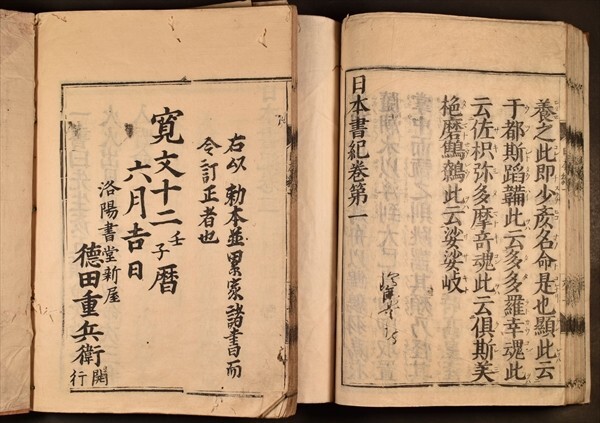 養之此即少彦名命是也顯此云
于都斯蹈鞴此云多多羅幸魂此
云佐枳弥多摩奇魂此云俱斯美
栬磨鷦鷯此云娑娑岐
日本書紀卷第一
右以勅本並累家諸書而
令訂正者也
寛文十二壬子暦
六月吉日
洛陽書堂新屋
德田重兵衛開行